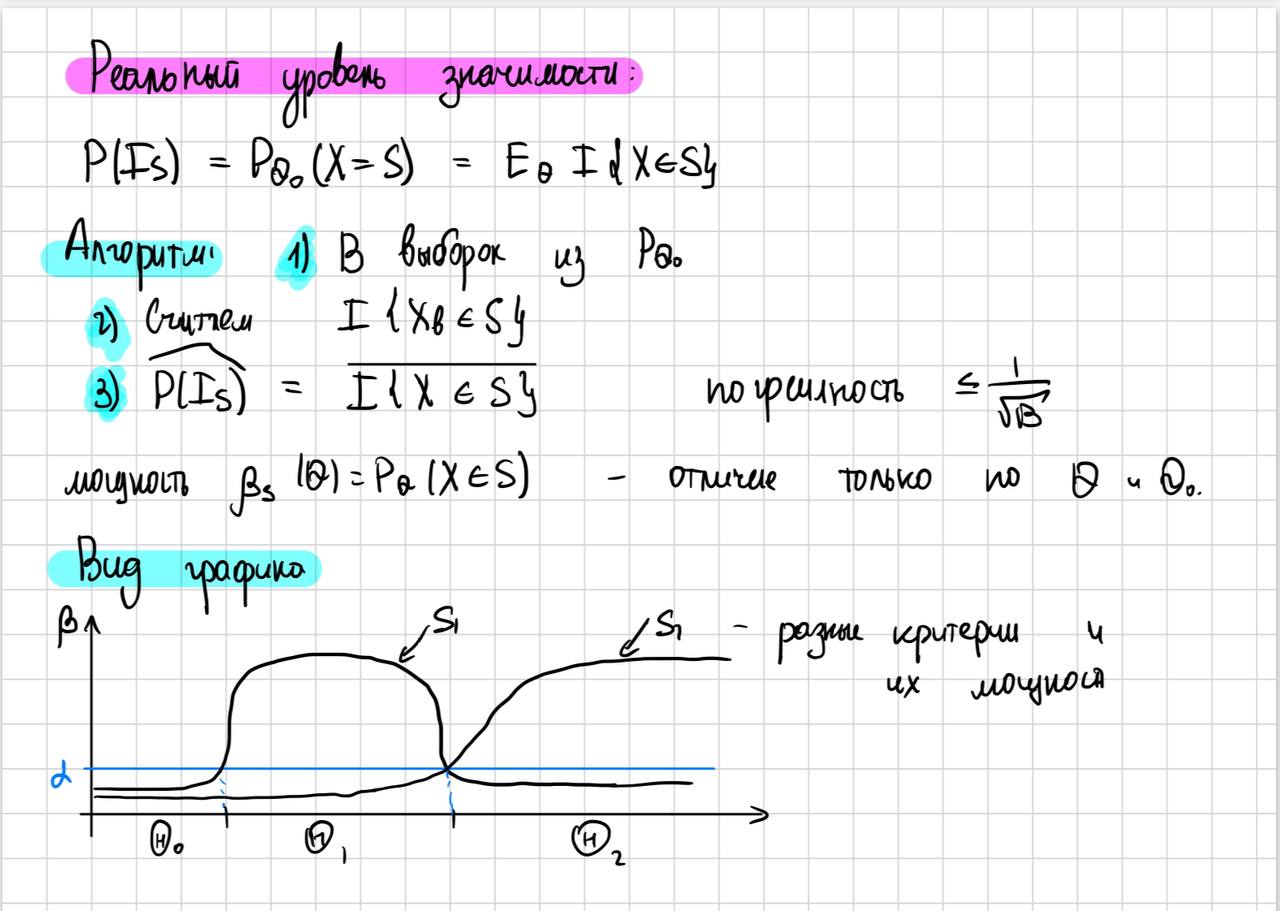 Реальный уровень значимости:
P(I_S) = P_θ₀(X=S) = E_θ I{X∈S}
Алгоритм: 1) B выборок из P_θ₀
2) Считаем I{X_B ∈ S}
3) \widehat{P(I_S)} = \overline{I{X ∈ S}} погрешность ≤ 1/√B
мощность β_S(θ) = P_θ(X∈S) – отличие только по θ и θ₀.
Вид графика
β S₁ S₂ – разные критерии и
их мощности
α
Θ₀ Θ₁ Θ₂